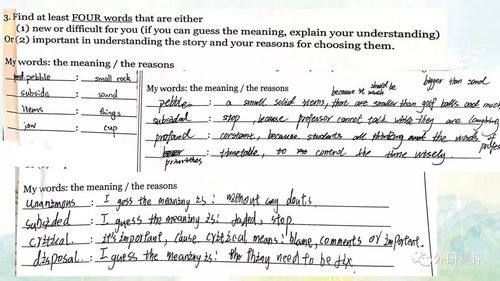 3. Find at least FOUR words that are either
(1) new or difficult for you (if you can guess the meaning, explain your understanding)
Or (2) important in understanding the story and your reasons for choosing them.
My words: the meaning / the reasons
pebble : small rock
subside : sound
items : things
jaw : cup
My words: the meaning / the reasons
because it much should be bigger than sand
pebble : a small solid items, that are smaller than golf balls and much
subsided : stop, because professor cannot talk while they are laughing
profound : constant, because students all thinking the words of profess
priorities : timetable, to control the time wisely
My words: the meaning / the reasons
unanimous : I gess the meaning is: without any doubts
subsided : I guess the meaning is: faded, stop
critical : it's important, cause critical means: blame, comments or important.
disposal : I guess the meaning is: the thing need to be fix.
外研测评